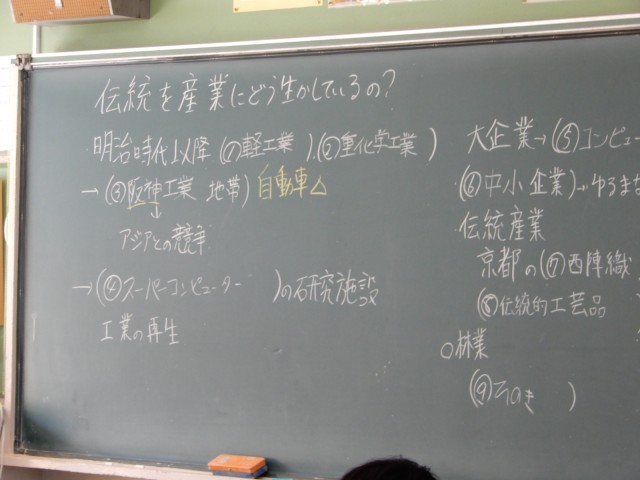 伝統を産業にどう生かしているの?
明治時代以降(①軽工業),(②重化学工業)
→(③阪神工業地帯)自動車△
↓
アジアとの競争
→(④スーパーコンピューター)の研究施設
工業の再生
大企業→(⑤コンピュー
(⑥中小企業)
伝統産業
京都の(⑦西陣織
(⑧伝統的工芸品
○林業
(⑨ひのき)